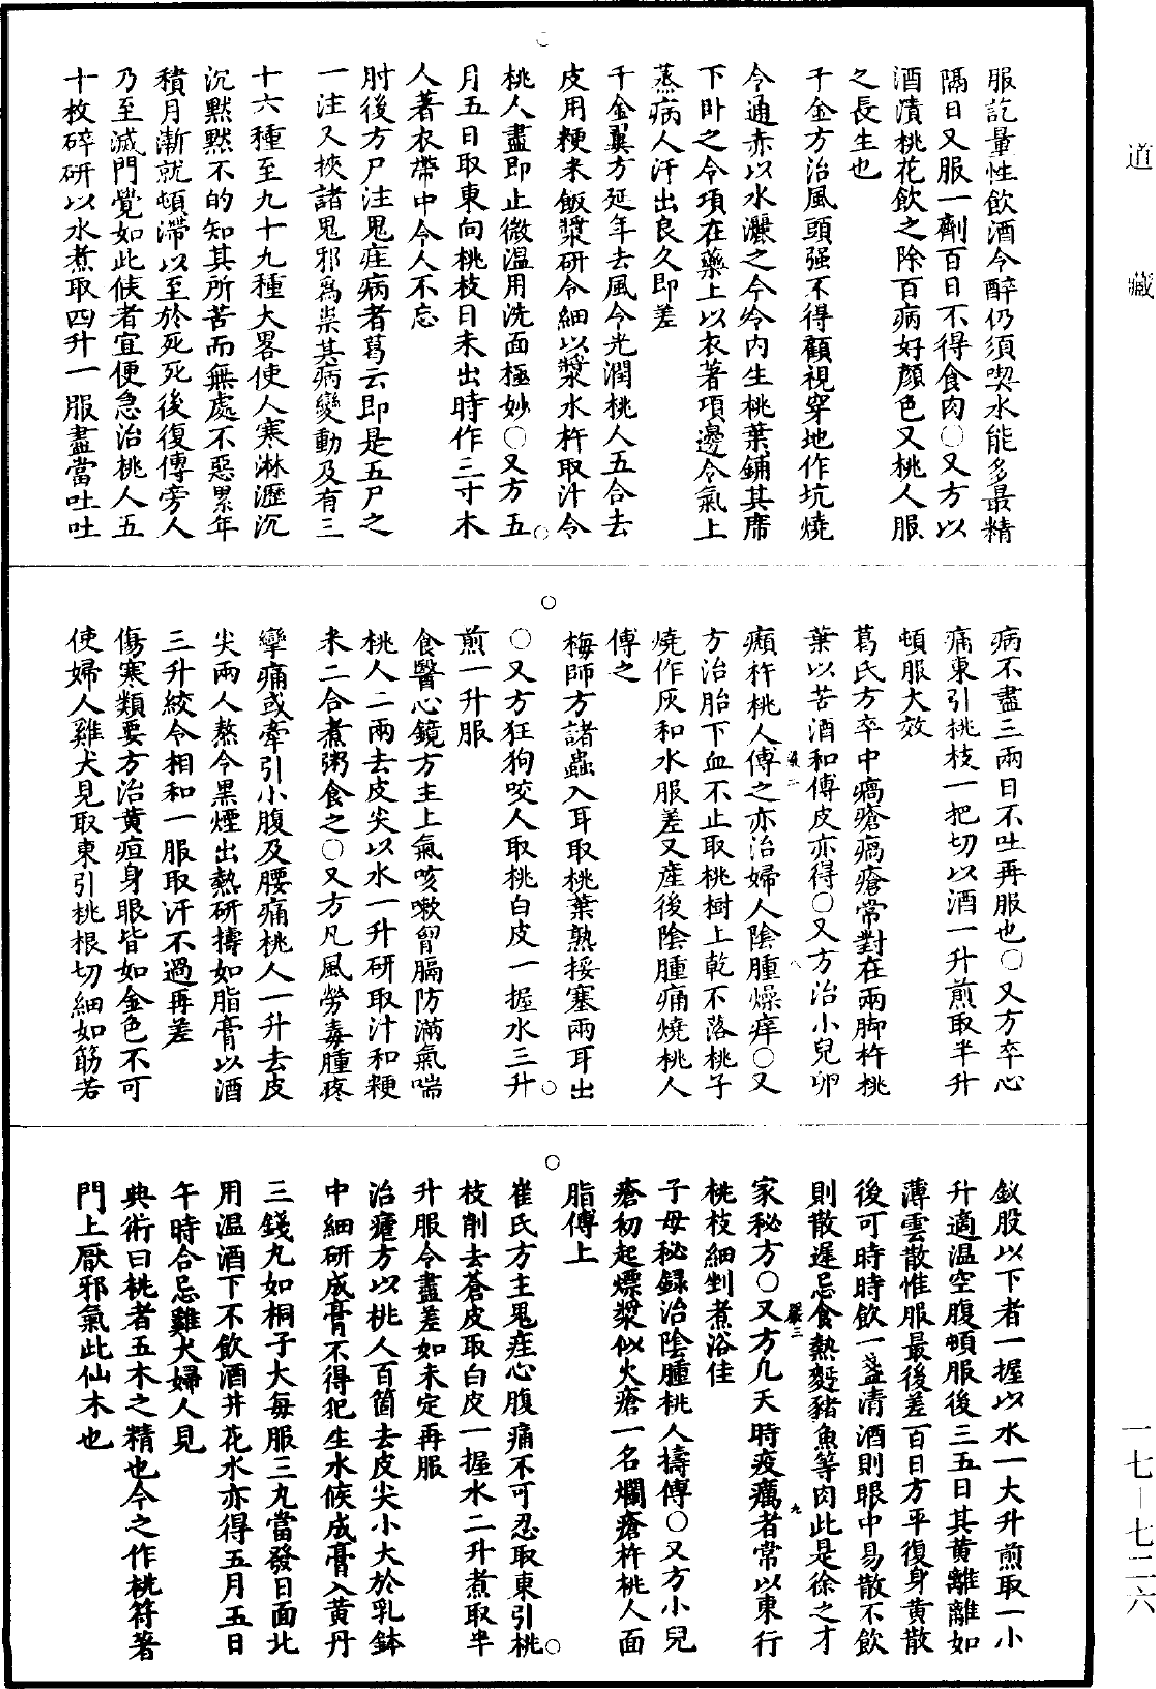 道藏
服訖量性飲酒令醉仍須喫水能多最精
隔日又服一劑百日不得食肉○又方以
酒漬桃花飲之除百病好顏色又桃人服
之長生也
千金方治風頭强不得顧視穿地作坑燒
令通赤以水灑之令冷內生桃葉鋪其席
下卧之令項在藥上以衣著項邊令氣上
蒸病人汗出良久即差
千金翼方延年去風令光潤桃人五合去
皮用粳米飯漿研令細以漿水杵取汁令
桃人盡即止微温用洗面極妙○又方五
月五日取東向桃枝日未出時作三寸木
人著衣帶中令人不忘
肘後方尸注鬼疰病者葛云即是五尸之
一注又挾諸鬼邪爲祟其病變動及有三
十六種至九十九種大畧使人寒淋瀝沉
沉默默不的知其所苦而無處不惡累年
積月漸就頓滯以至於死死後復傳旁人
乃至滅門覺如此候者宜便急治桃人五
十枚碎研以水煮取四升一服盡當吐吐
病不盡三兩日不吐再服也○又方卒心
痛東引桃枝一把切以酒一升煎取半升
頓服大效
葛氏方卒中瘑瘡瘑瘡常對在兩脚杵桃
葉以苦酒和傅皮亦得○又方治小兒卵
㿗杵桃人傅之亦治婦人陰腫燥痒○又
方治胎下血不止取桃樹上乾不落桃子
燒作灰和水服差又產後陰腫痛燒桃人
傅之
梅師方諸蟲入耳取桃葉熟挼塞兩耳出
○又方狂狗咬人取桃白皮一握水三升
煎一升服
食醫心鏡方主上氣咳嗽胷膈防滿氣喘
桃人二兩去皮尖以水一升研取汁和粳
米二合煮粥食之○又方凡風勞毒腫疼
攣痛或牽引小腹及腰痛桃人一升去皮
尖兩人熬令黑煙出熱研擣如脂膏以酒
三升絞令相和一服取汗不過再差
傷寒類要方治黃疸身眼皆如金色不可
使婦人雞犬見取東引桃根切細如筋若
釵股以下者一握以水一大升煎取一小
升適温空腹頓服後三五日其黃離離如
薄雲散惟服最後差百日方平復身黃散
後可時時飲一盞清酒則眼中易散不飲
則散遲忌食熱麪豬魚等肉此是徐之才
家秘方○又方凡天時疫癘者常以東行
桃枝細剉煮浴佳
子母秘録治陰腫桃人擣傅○又方小兒
瘡初起熛漿似火瘡一名爛瘡杵桃人面
脂傅上
崔氏方主鬼疰心腹痛不可忍取東引桃
枝削去蒼皮取白皮一握水二升煮取半
升服令盡差如未定再服
治瘧方以桃人百箇去皮尖小大於乳鉢
中細研成膏不得犯生水候成膏入黃丹
三錢丸如桐子大每服三丸當發日面北
用温酒下不飲酒井花水亦得五月五日
午時合忌雞犬婦人見
典術曰桃者五木之精也今之作桃符著
門上厭邪氣此仙木也
一七—七二六